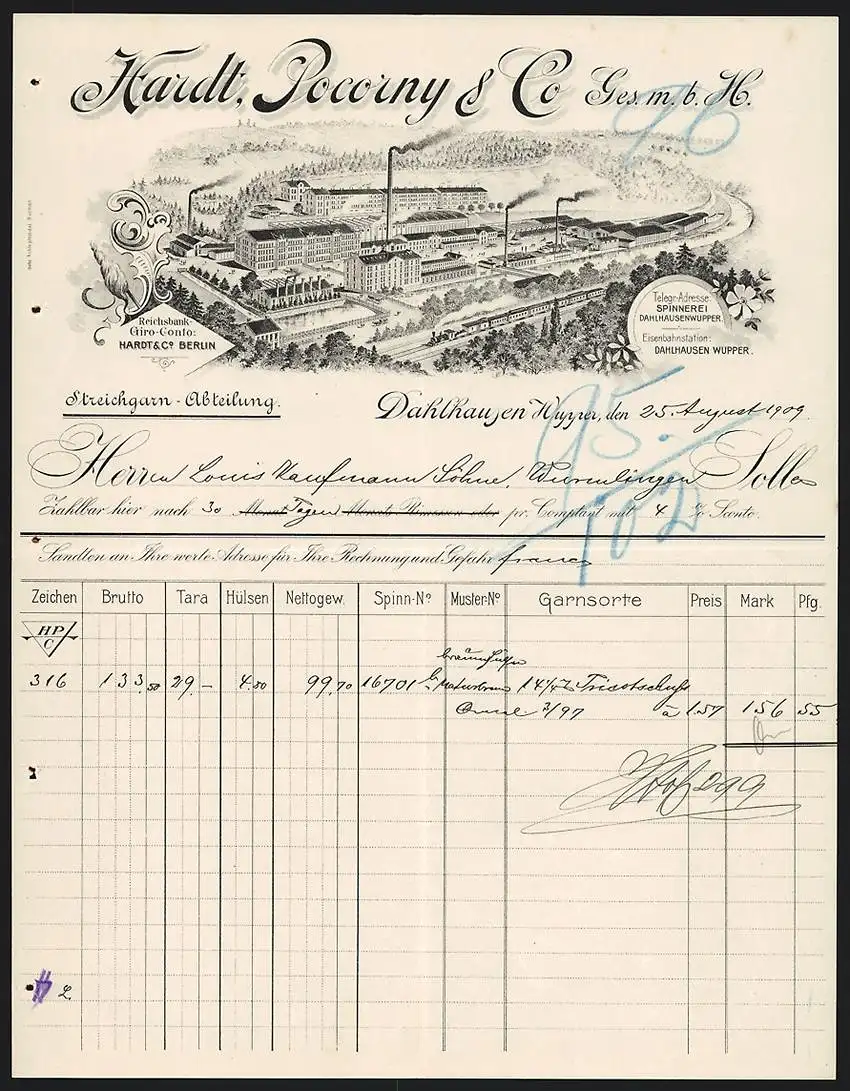 Hardt, Pocorny & Co Ges. m. b. H.
76
Reichsbank-
Giro-Conto:
HARDT & Co BERLIN
Telegr.-Adresse:
SPINNEREI
DAHLHAUSENWUPPER.
Eisenbahnstation:
DAHLHAUSEN WUPPER.
Streichgarn-Abteilung.
Dahlhausen Wupper, den 25. August 1909.
95.
Herren Louis Kaufmann Söhne, Wurmlingen Soll
Zahlbar hier nach 30 Monat Tagen Monats Rimessen oder pr. Comptant mit 4 % Sconto.
102
Sandten an Ihre werte Adresse für Ihre Rechnung und Gefahr franco
Zeichen Brutto Tara Hülsen Nettogew. Spinn-No Muster-No Garnsorte Preis Mark Pfg.
HP
C
316 133.50 29.- 4.80 99.70 16701 Naturbraun 14/1/2 Tricotschuss
2/97 à 1.57 156 55
299
L.